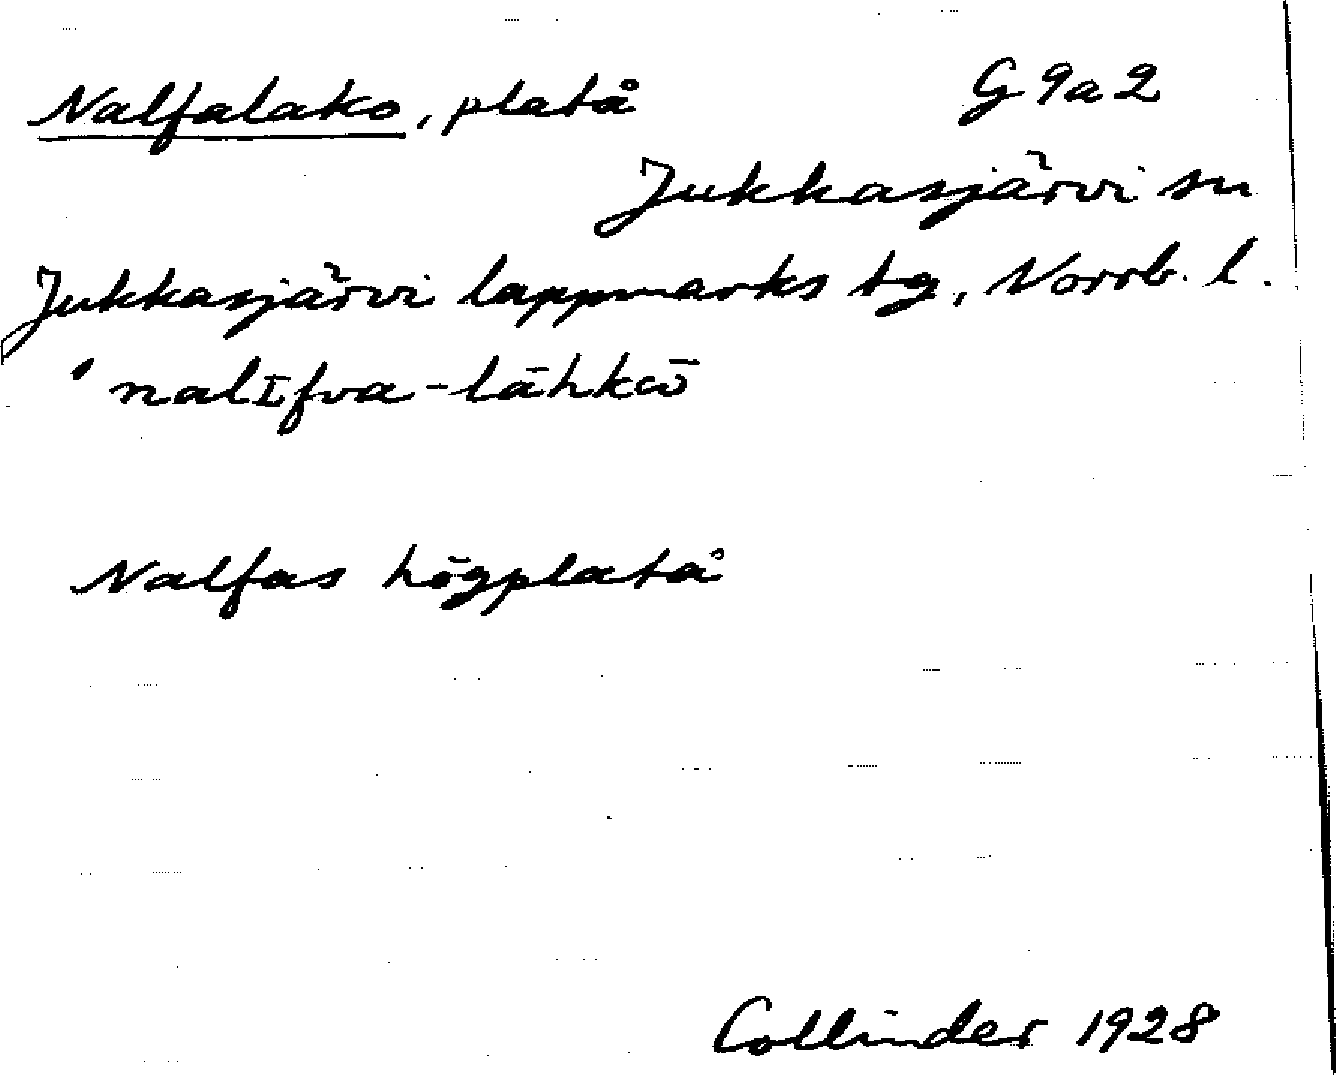 Nalfalako, platå G 9 a 2
Jukkasjärvi sn
Jukkasjärvi lappmarks tg, Norrb. l.
nalɪfva-lāhkō
Nalfas högplatå
Collinder 1928